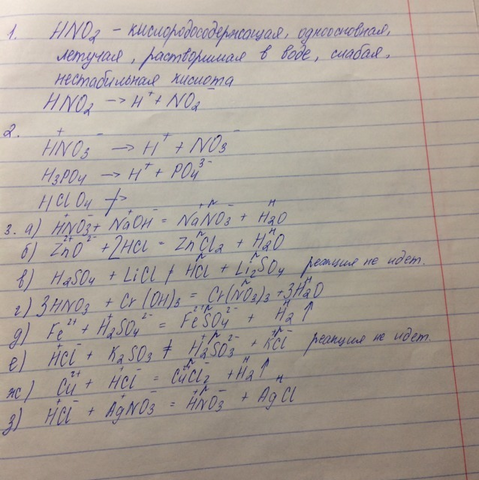 1. HNO2 – кислородосодержащая, одноосновная,
летучая, растворимая в воде, слабая,
нестабильная кислота
HNO2 → H⁺ + NO2⁻
2.
H⁺NO3⁻ → H⁺ + NO3⁻
H3PO4 → H⁺ + PO4³⁻
HClO4 ↛
3. а) H⁺NO3⁻ + Na⁺OH⁻ = NaNO3 + H2O
б) Zn²⁺O²⁻ + 2HCl = ZnCl2 + H2O
в) H2SO4 + LiCl ≠ HCl + Li2SO4 реакция не идет.
г) 3HNO3 + Cr(OH)3 = Cr(NO3)3 + 3H2O
д) Fe²⁺ + H2SO4²⁻ = Fe²⁺SO4²⁻ + H2↑
е) H⁺Cl⁻ + K2SO3 ≠ H2⁺SO3²⁻ + K⁺Cl⁻ реакция не идет.
ж) Cu²⁺ + H⁺Cl⁻ = CuCl2 + H2↑
з) H⁺Cl⁻ + Ag⁺NO3⁻ = H⁺NO3⁻ + AgCl